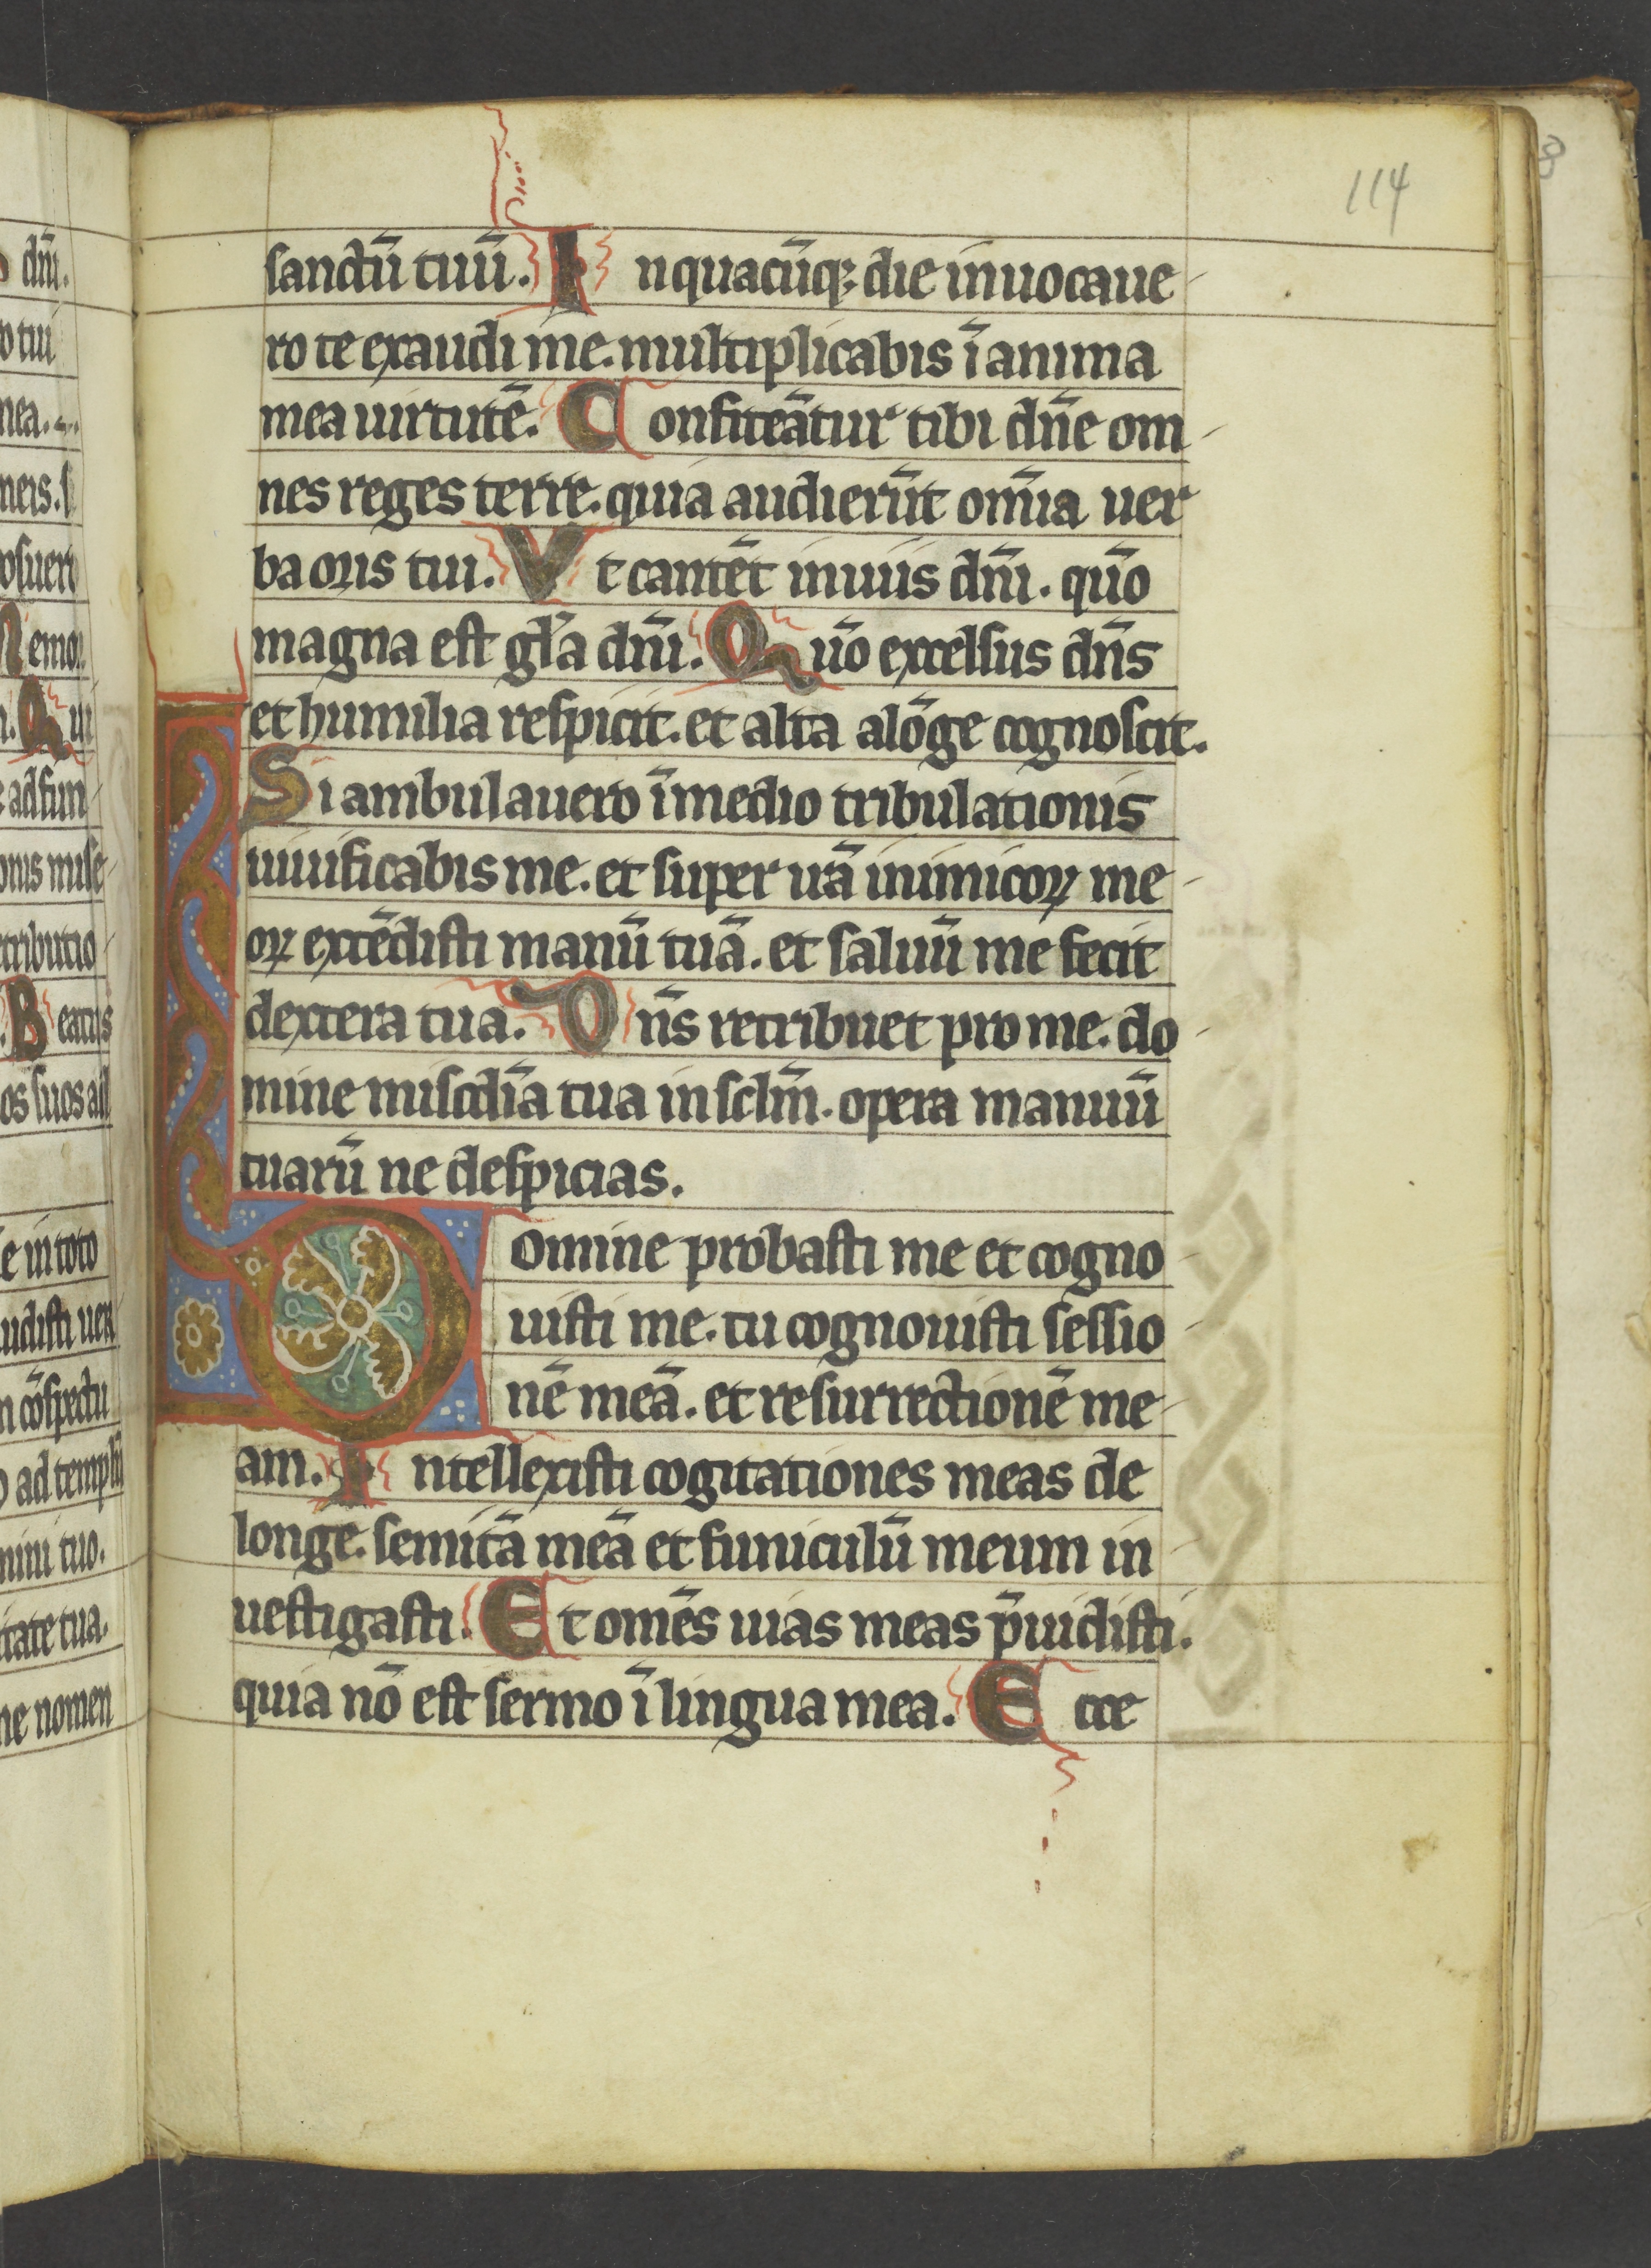 114
sanctū tuū. In quacūq; die inuocaue
ro te exaudi me. multiplicabis ī anima
mea uirtutē. Confiteātur tibi dn̄e om
nes reges terre. quia audierūt om̄ia uer
ba oris tui. Vt cantēt in uiis dn̄i. quō
magna est gl̄a dn̄i. Quō excelsus dn̄s
et humilia respicit. et alta alōge cognoscit.
Si ambulauero ī medio tribulationis
uiuificabis me. et super irā inimicoꝝ me
oꝝ extēdisti manū tuā. et saluū me fecit
dextera tua. Dn̄s retribuet pro me. do
mine miscdīa tua in sclm̄. opera manuū
tuarū ne despicias.
Domine probasti me et cogno
uisti me. tu cognouisti sessio
nē meā. et resurrectionē me
am. Intellexisti cogitationes meas de
longe. semitā meā et funiculū meum in
uestigasti. Et omēs uias meas p̄uidisti.
quia nō est sermo ī lingua mea. Ecce